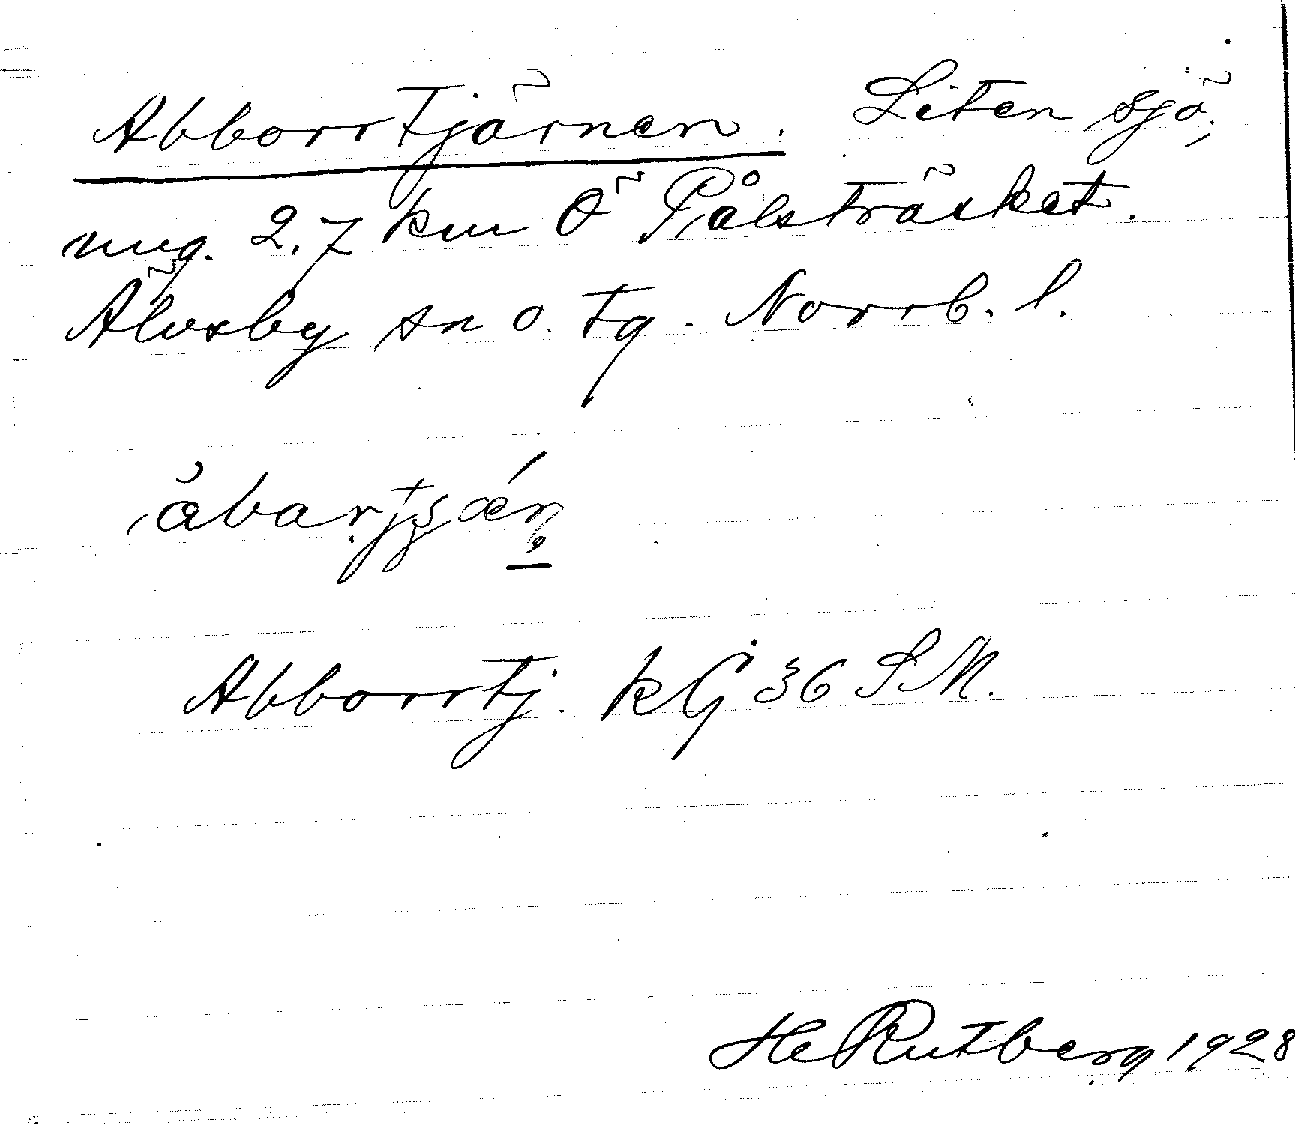 Abborrtjärnen. Liten sjö,
ung. 2,7 km Ö Pålsträsket.
Älvsby sn o. tg. Norrb. l.
Abborrtj. kG 36 SM.
He Rutberg 1928